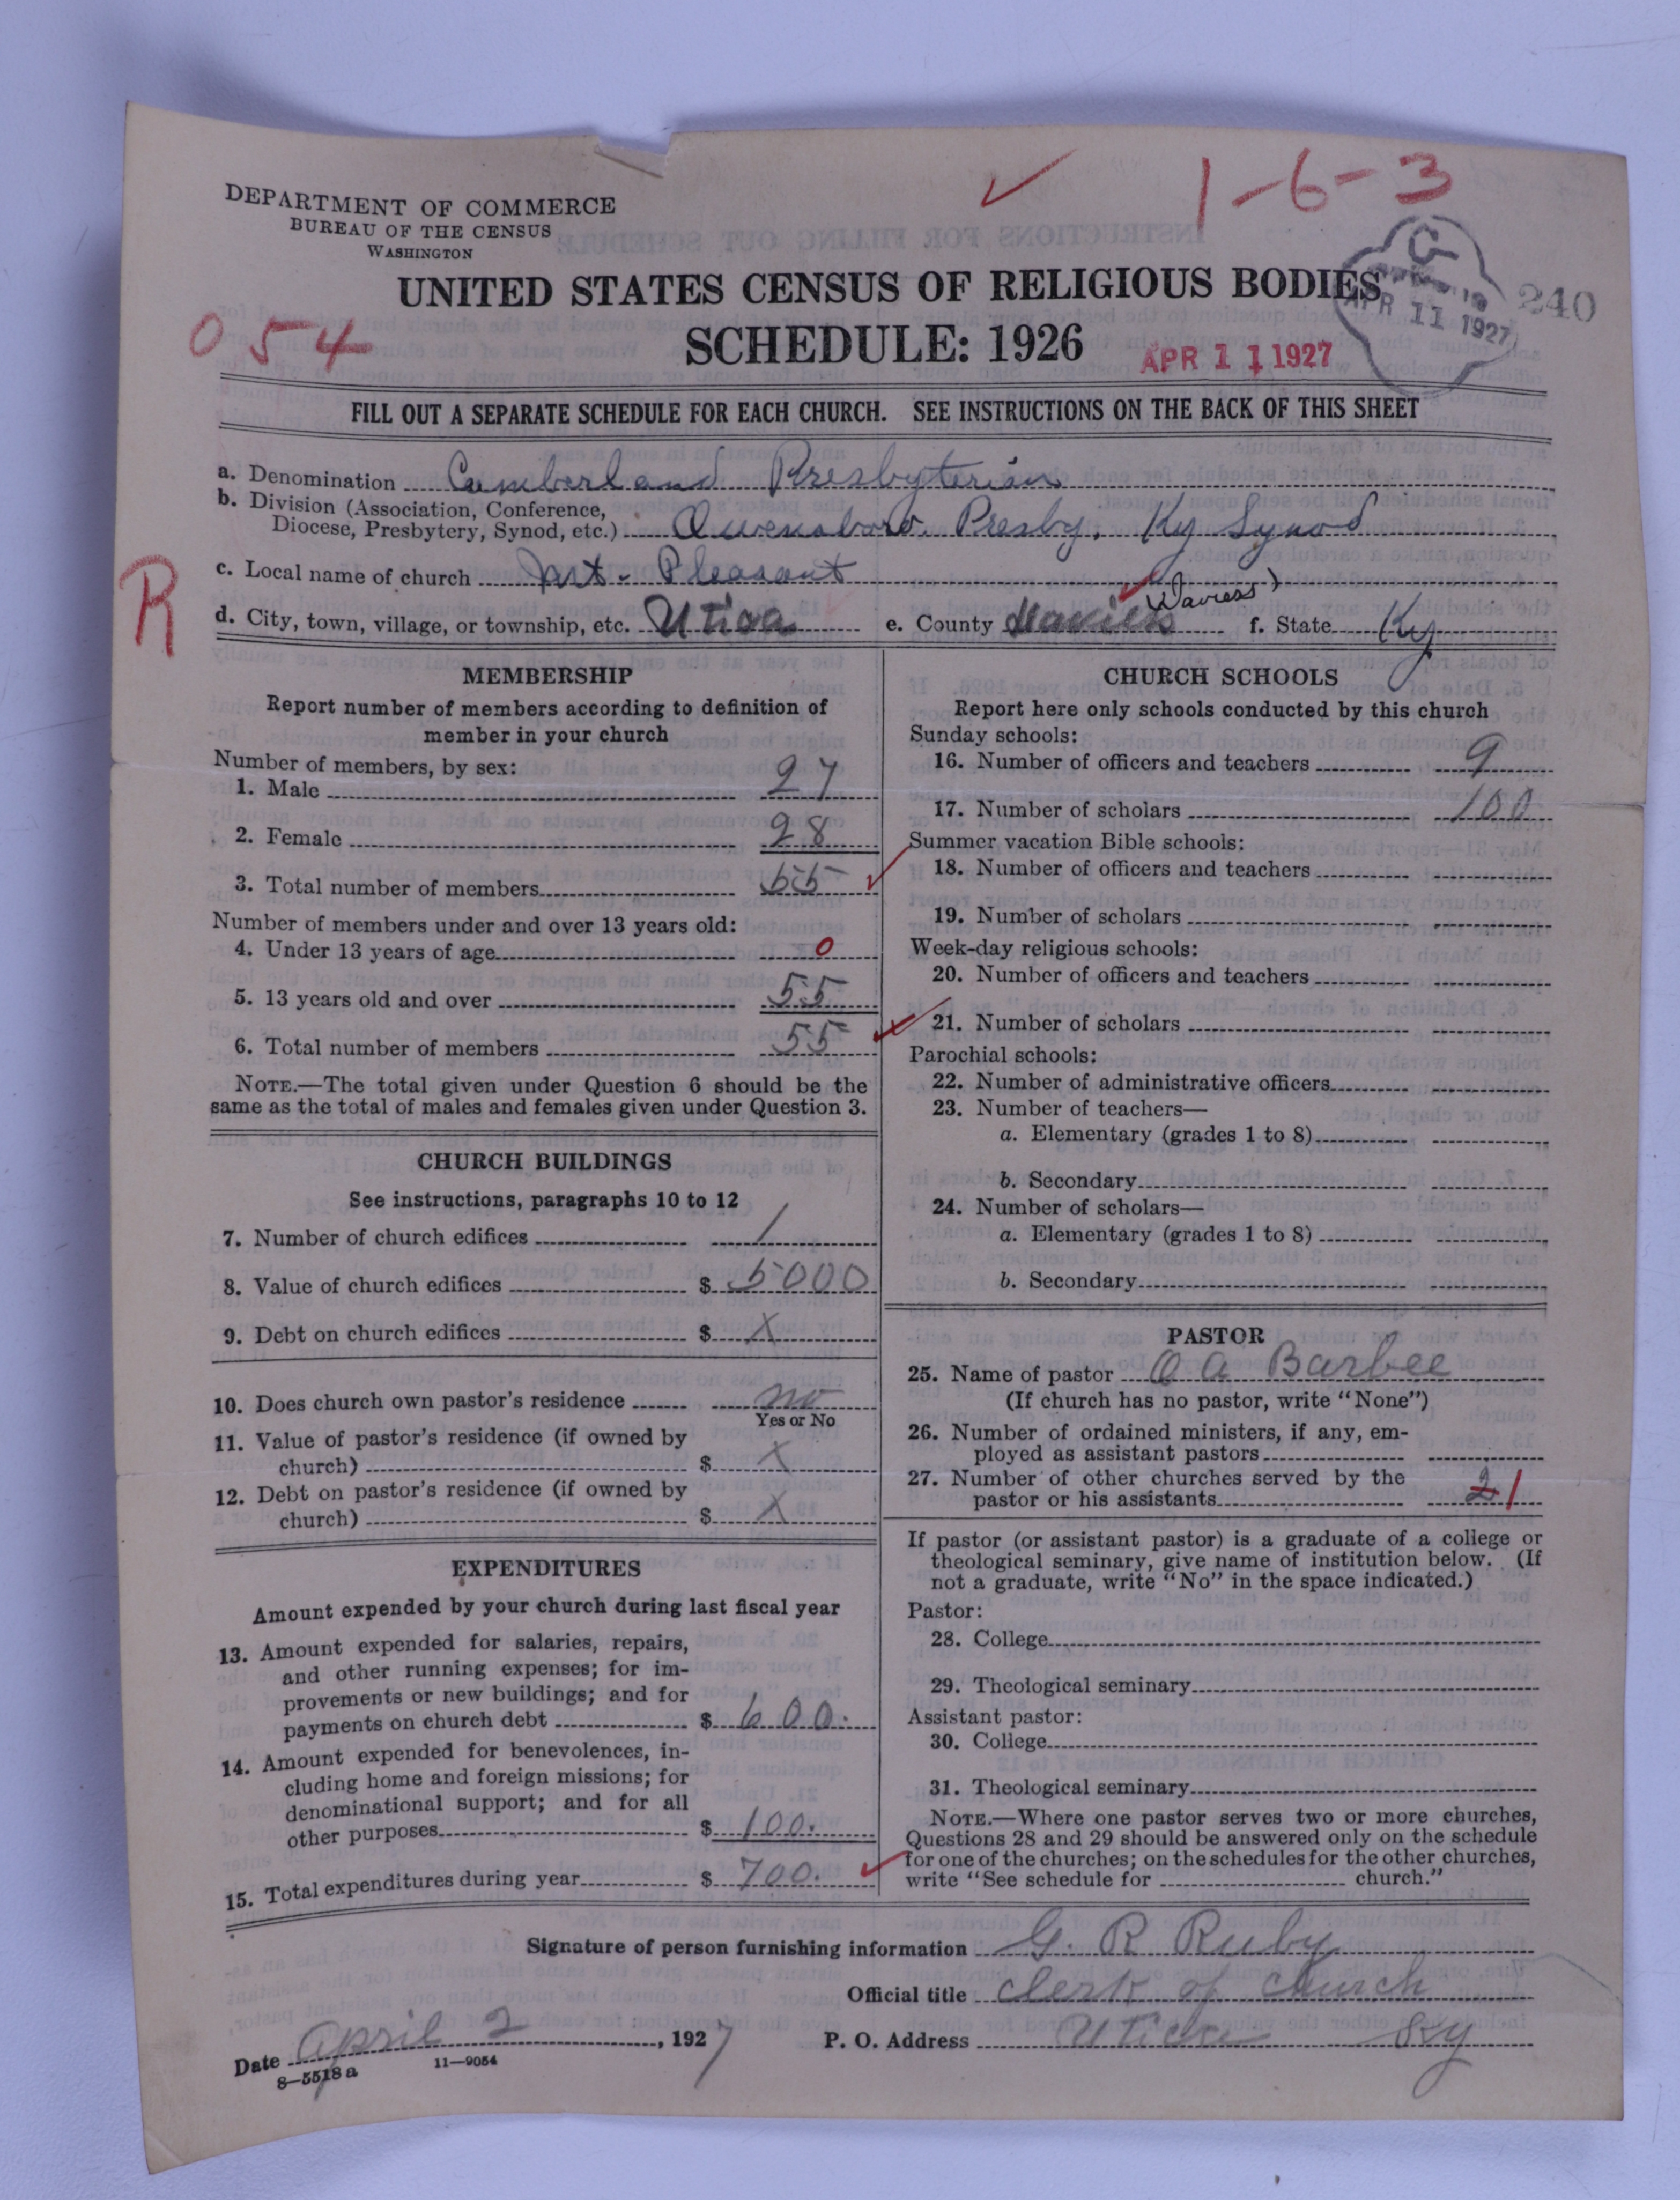 1-6-3
DEPARTMENT OF COMMERCE
BUREAU OF THE CENSUS
WASHINGTON
UNITED STATES CENSUS OF RELIGIOUS BODIES
SCHEDULE: 1926
054
APR 11 1927
APR 11 1927
240
FILL OUT A SEPARATE SCHEDULE FOR EACH CHURCH. SEE INSTRUCTIONS ON THE BACK OF THIS SHEET
a. Denomination Cumberland Presbyterian
b. Division (Association, Conference,
Diocese, Presbytery, Synod, etc.) Owensboro. Presby. Ky Synod
c. Local name of church Mt. Pleasant
R
d. City, town, village, or township, etc. Utica e. County Davies (Daviess) f. State Ky
MEMBERSHIP
Report number of members according to definition of
member in your church
Number of members, by sex:
1. Male 27
2. Female 28
3. Total number of members 55
Number of members under and over 13 years old:
4. Under 13 years of age 0
5. 13 years old and over 55
6. Total number of members 55
NOTE.—The total given under Question 6 should be the
same as the total of males and females given under Question 3.
CHURCH BUILDINGS
See instructions, paragraphs 10 to 12
7. Number of church edifices 1
8. Value of church edifices $ 5000
9. Debt on church edifices $ X
10. Does church own pastor's residence no
Yes or No
11. Value of pastor's residence (if owned by
church) $ X
12. Debt on pastor's residence (if owned by
church) $ X
EXPENDITURES
Amount expended by your church during last fiscal year
13. Amount expended for salaries, repairs,
and other running expenses; for im-
provements or new buildings; and for
payments on church debt $ 600.
14. Amount expended for benevolences, in-
cluding home and foreign missions; for
denominational support; and for all
other purposes $ 100.
15. Total expenditures during year $ 700.
CHURCH SCHOOLS
Report here only schools conducted by this church
Sunday schools:
16. Number of officers and teachers 9
17. Number of scholars 100
Summer vacation Bible schools:
18. Number of officers and teachers
19. Number of scholars
Week-day religious schools:
20. Number of officers and teachers
21. Number of scholars
Parochial schools:
22. Number of administrative officers
23. Number of teachers—
a. Elementary (grades 1 to 8)
b. Secondary
24. Number of scholars—
a. Elementary (grades 1 to 8)
b. Secondary
PASTOR
25. Name of pastor O A Barbee
(If church has no pastor, write "None")
26. Number of ordained ministers, if any, em-
ployed as assistant pastors
27. Number of other churches served by the
pastor or his assistants 2 1
If pastor (or assistant pastor) is a graduate of a college or
theological seminary, give name of institution below. (If
not a graduate, write "No" in the space indicated.)
Pastor:
28. College
29. Theological seminary
Assistant pastor:
30. College
31. Theological seminary
NOTE.—Where one pastor serves two or more churches,
Questions 28 and 29 should be answered only on the schedule
for one of the churches; on the schedules for the other churches,
write "See schedule for church."
Signature of person furnishing information G. R Ruby
Official title Clerk of Church
Date April 2, 1927 P. O. Address Utica Ky
8—5518 a 11—9054